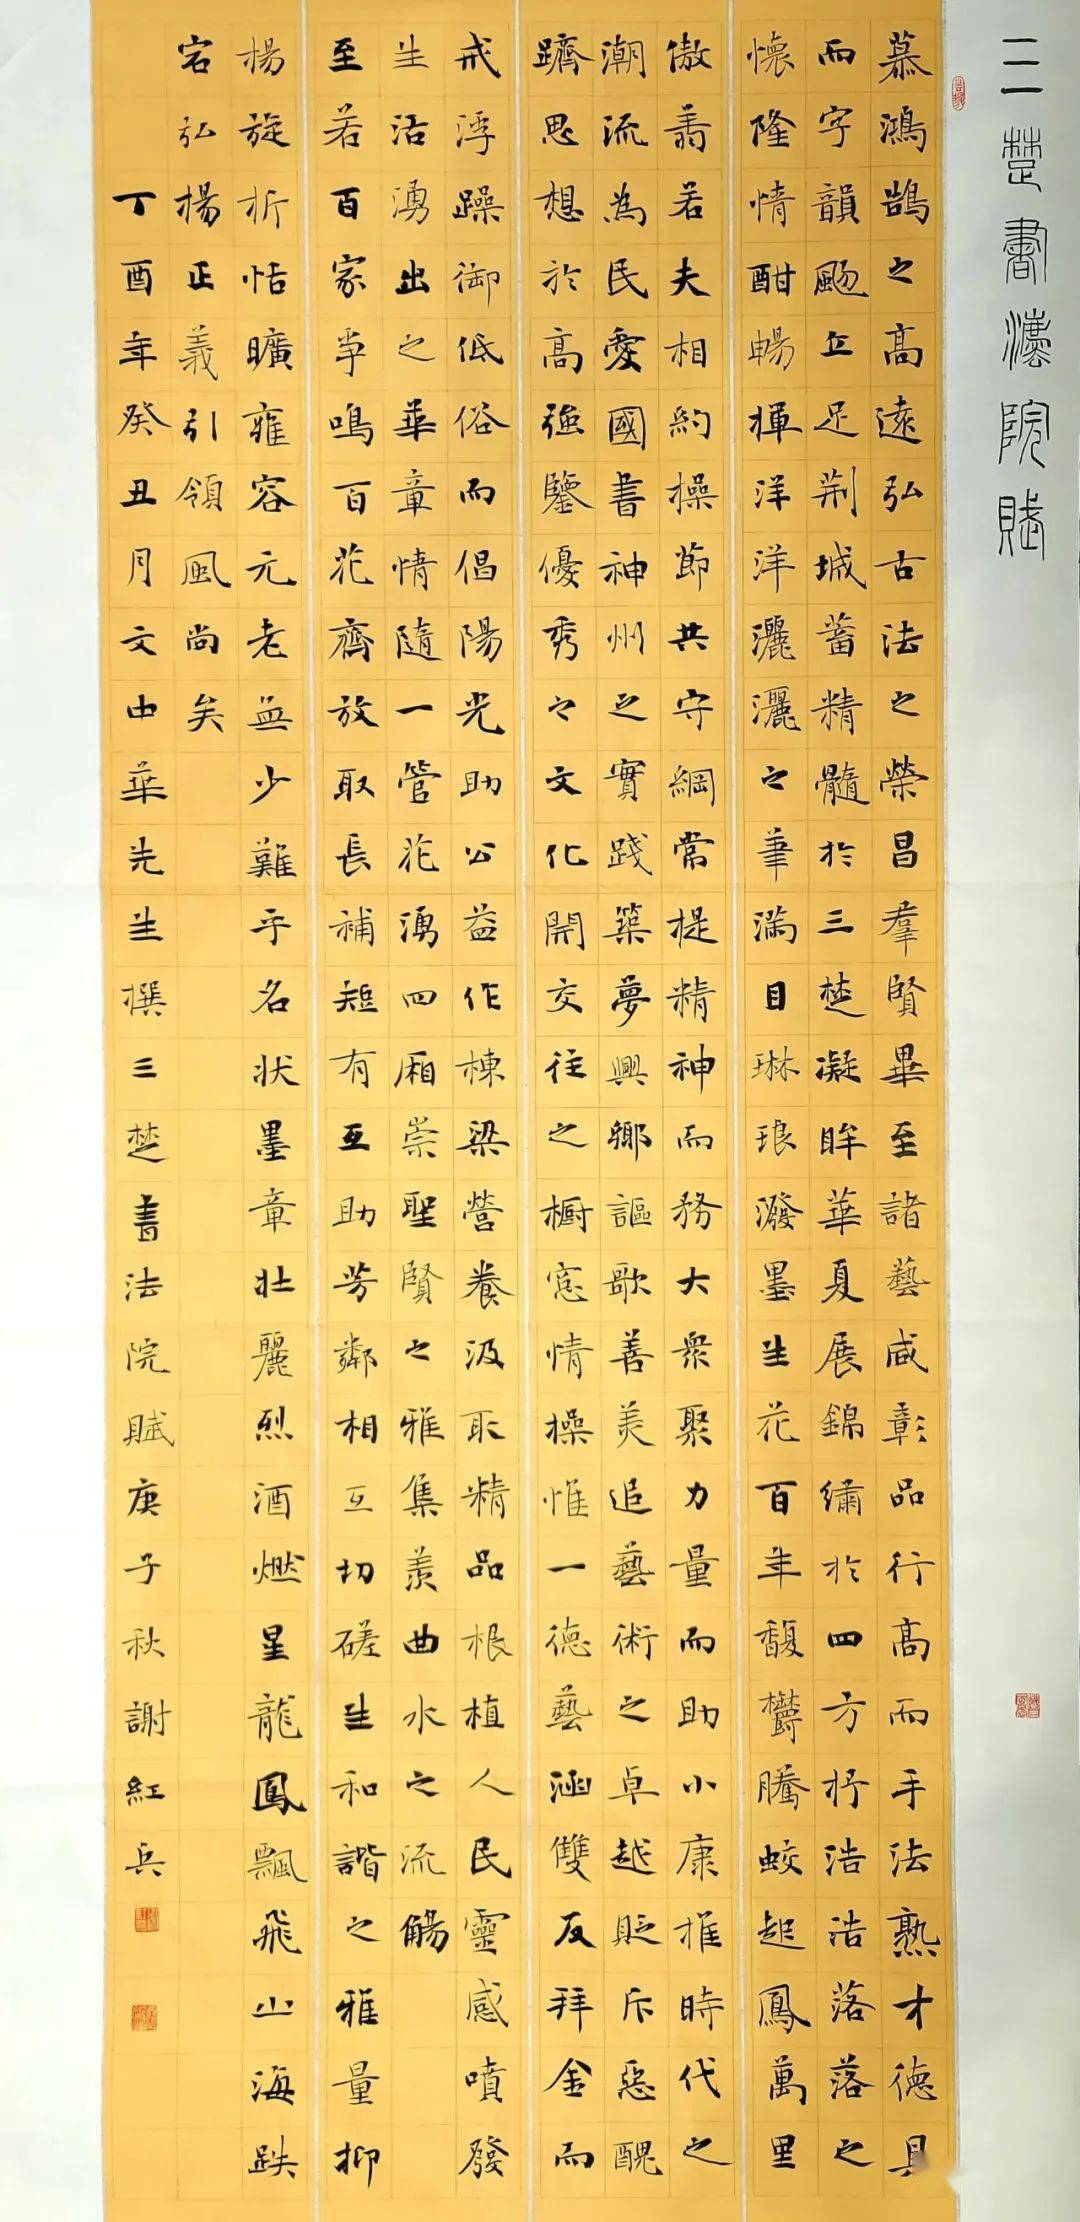 三楚書法院賦
慕鴻鵠之高遠弘古法之榮昌羣賢畢至諸藝咸彰品行高而手法熟才德具
而字韻颺立足荆城蓄精髓於三楚凝眸華夏展錦繡於四方抒浩浩落落之
懷隆情酣暢揮洋洋灑灑之筆滿目琳琅潑墨生花百年馥欎騰蛟起鳳萬里
傲翥若夫相約操節共守綱常提精神而務大衆聚力量而助小康推時代之
潮流為民愛國書神州之實踐築夢興鄉謳歌善美追藝術之卓越貶斥惡醜
躋思想於高強鑒優秀之文化開交往之櫥窓情操惟一德藝涵雙反拜金而
戒浮躁御低俗而倡陽光助公益作棟梁營養汲取精品根植人民靈感噴發
生活湧出之華章情隨一管花湧四廂崇聖賢之雅集羨曲水之流觴
至若百家爭鳴百花齊放取長補短有互助芳鄰相互切磋生和諧之雅量抑
楊旋折恬曠雍容元老無少難乎名狀墨章壯麗烈酒燃星龍鳳飄飛山海跌
宕弘楊正義引領風尚矣
丁酉年癸丑月文由華先生撰三楚書法院賦庚子秋謝紅兵